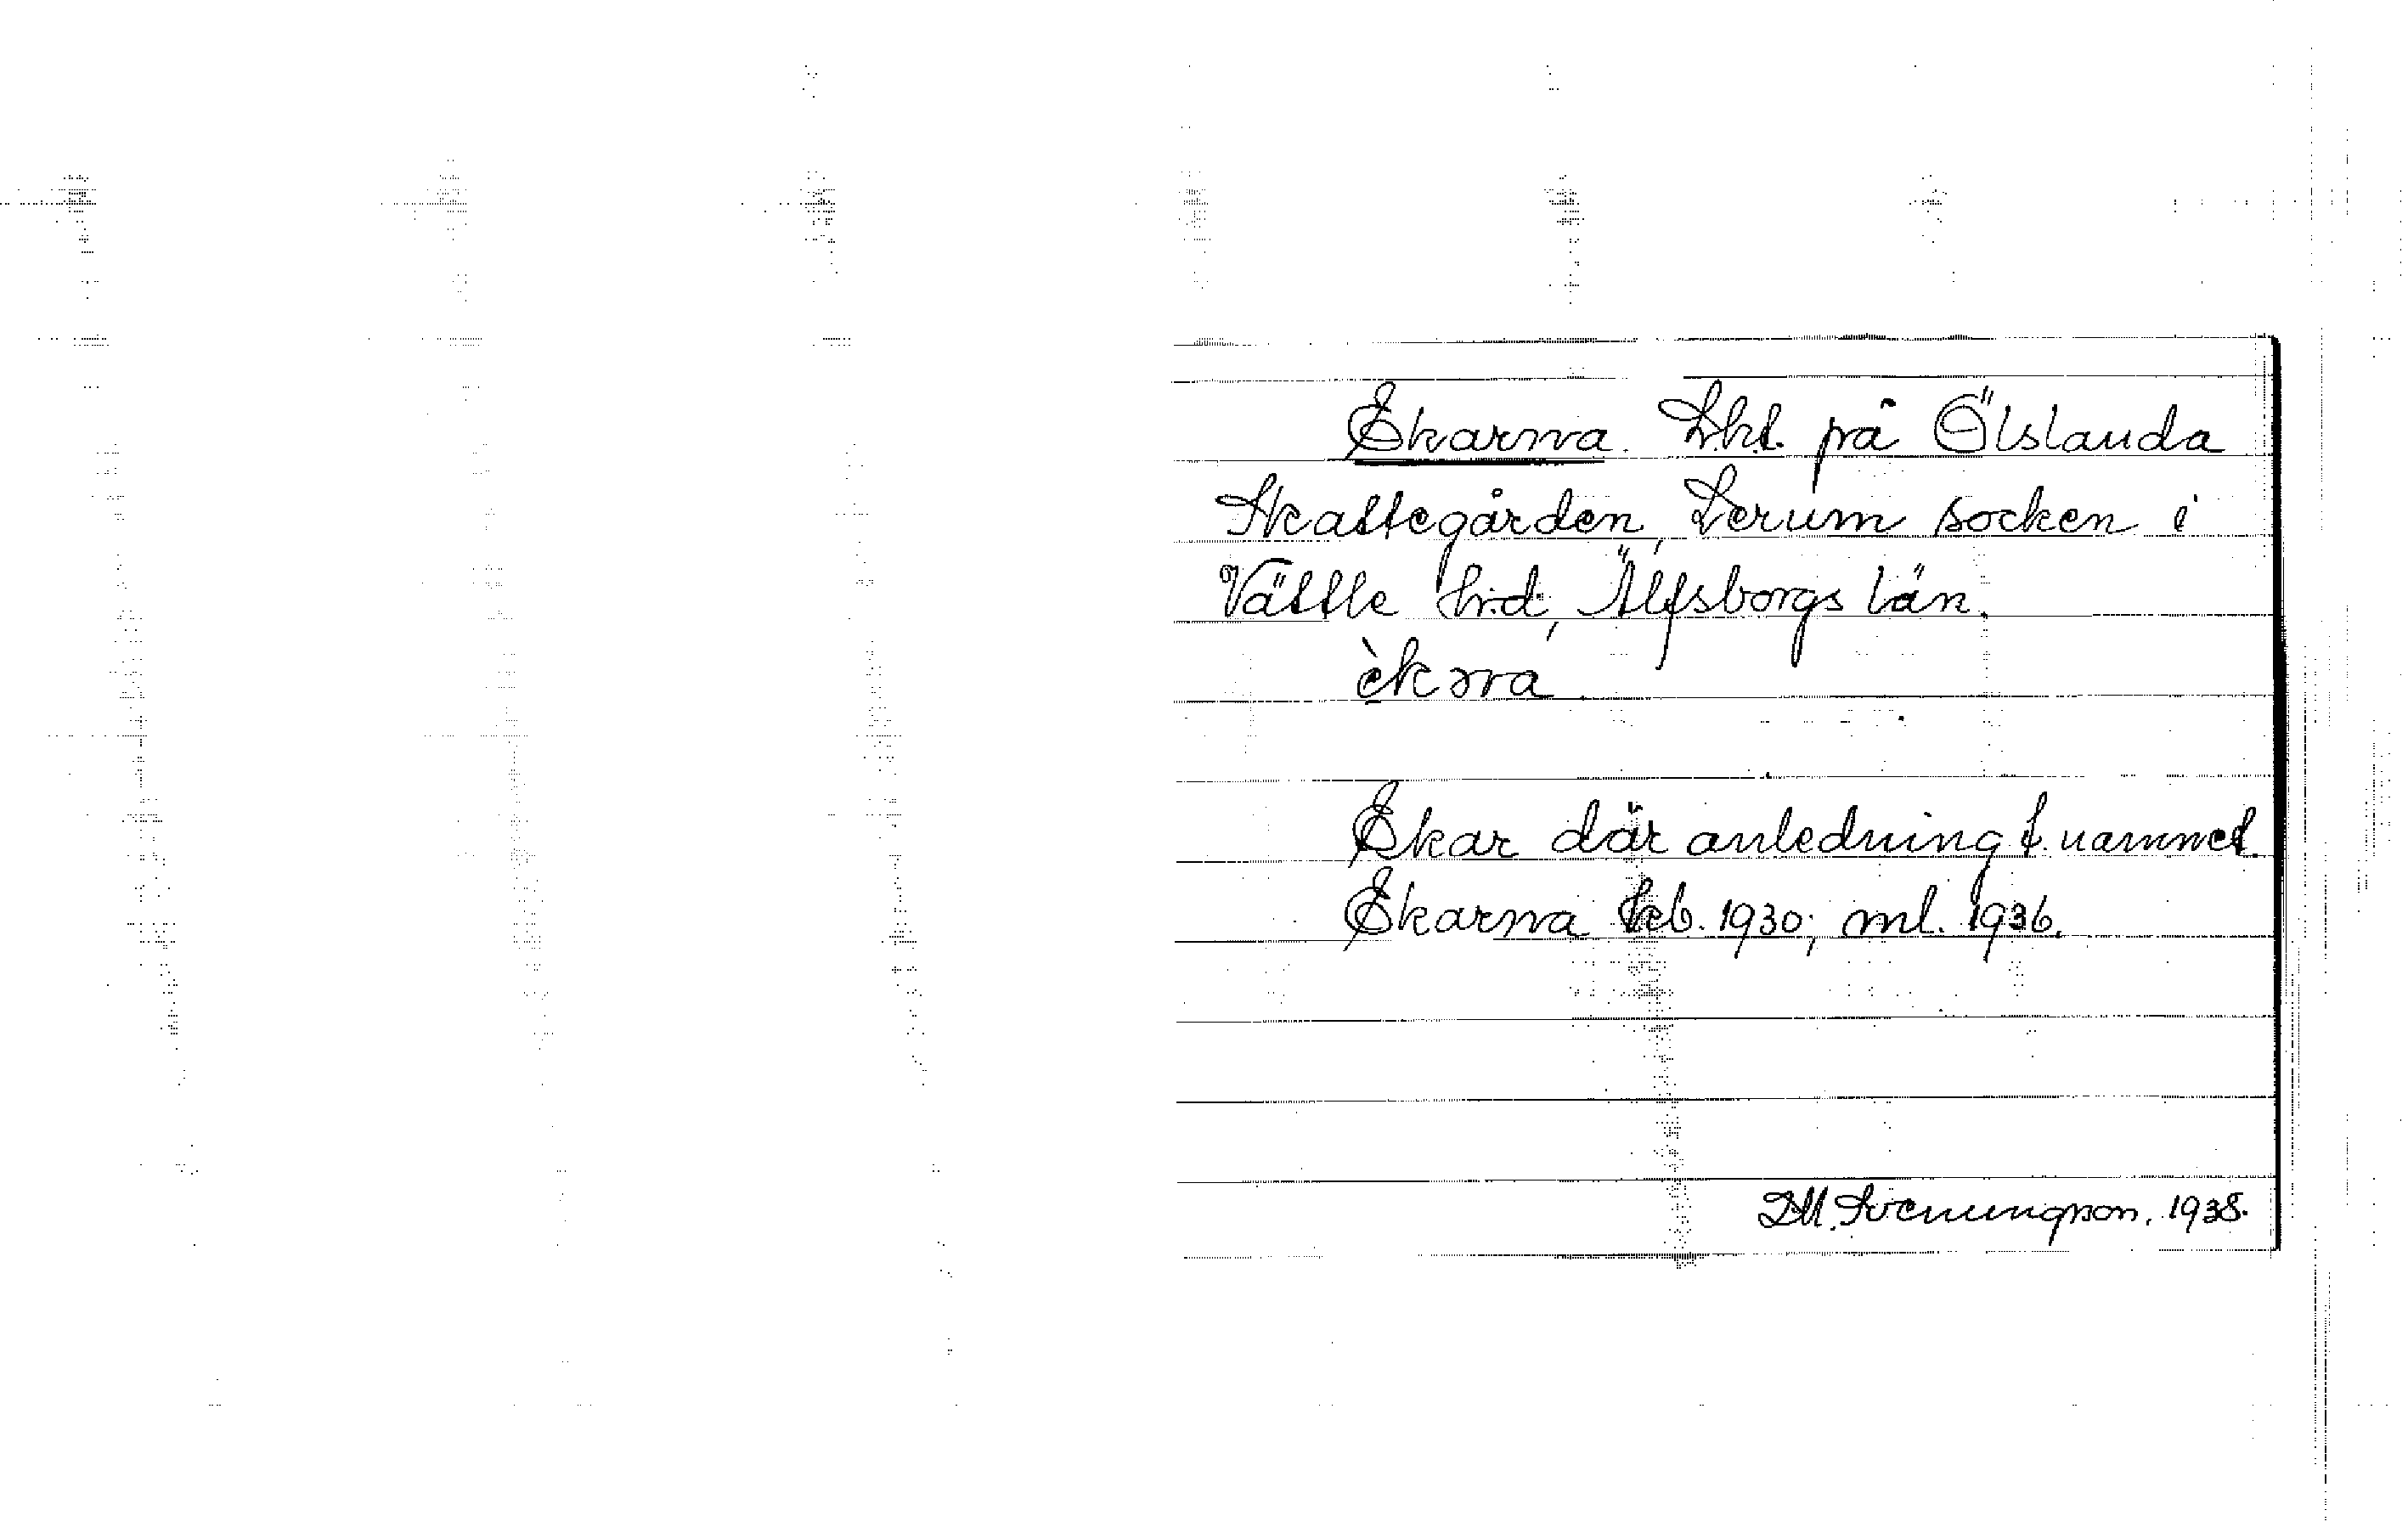 Ekarna. Lht. på Ölslanda
Skattegården, Lerum socken i
Vättle hrd, Älfsborgs län.
èkɔra
Ekar där anledning t. namnet.
Ekarna kb. 1930; ml. 1936.
D.M. Svenungson. 1938.